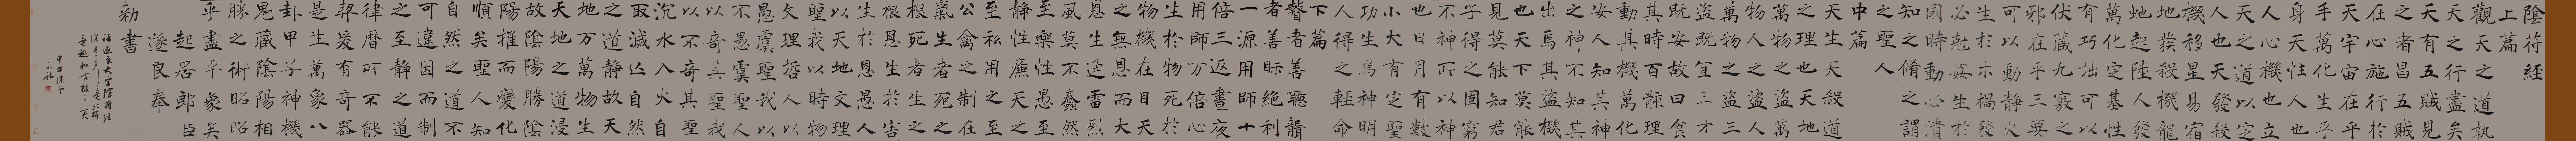 陰符經
上篇
觀天之道執
天之行盡矣
天有五賊見
之者昌五賊
在心施行於
天宇宙在乎
手萬化生乎
身天性人也
人心機也立
天之道以定
人也天發殺
機移星易宿
地發殺機龍
虵起陸人發
萬化定基性
有巧拙可以
伏藏九竅之
邪在乎三要
可以動靜火
生於木禍發
必尅姦生於
國時動必潰
知之脩之謂
之聖人
中篇
天生天殺道
之理也天地
萬物之盜萬
物人之盜人
萬物之盜三
盜既宜三才
既安故曰食
其時百骸理
動其機萬化
安人知其神
之神不知其
出焉其盜機
也天下莫能
見莫能知君
子得之固窮
不神所以神
也日月有數
小大有定聖
功生焉神明
人得之輕命
下篇
瞽者善聽聾
者善眎絕利
一源用師十
倍三返晝夜
用師万倍心
生於物死於
物機在目天
之無恩而大
恩生迅雷烈
風莫不蠢然
至樂性愚至
靜性廉天之
至私用之至
公禽之制在
氣生者死之
根死者生之
根恩生於害
生於恩愚人
以天地文理
聖我以時物
文理哲人以
愚虞聖我以
不愚虞聖人
以奇其聖我
以不奇其聖
沉水入火自
取滅亡自然
之道靜故天
地之萬物生
天地之道浸
故陰陽勝陰
陽推而變化
順矣聖人知
自然之道不
可違因而制
之至靜之道
律曆所不能
契爰有奇器
是生萬象八
卦甲子神機
鬼藏陰陽相
勝之術昭昭
乎盡乎象矣
起居郎臣
遂良奉
勑書